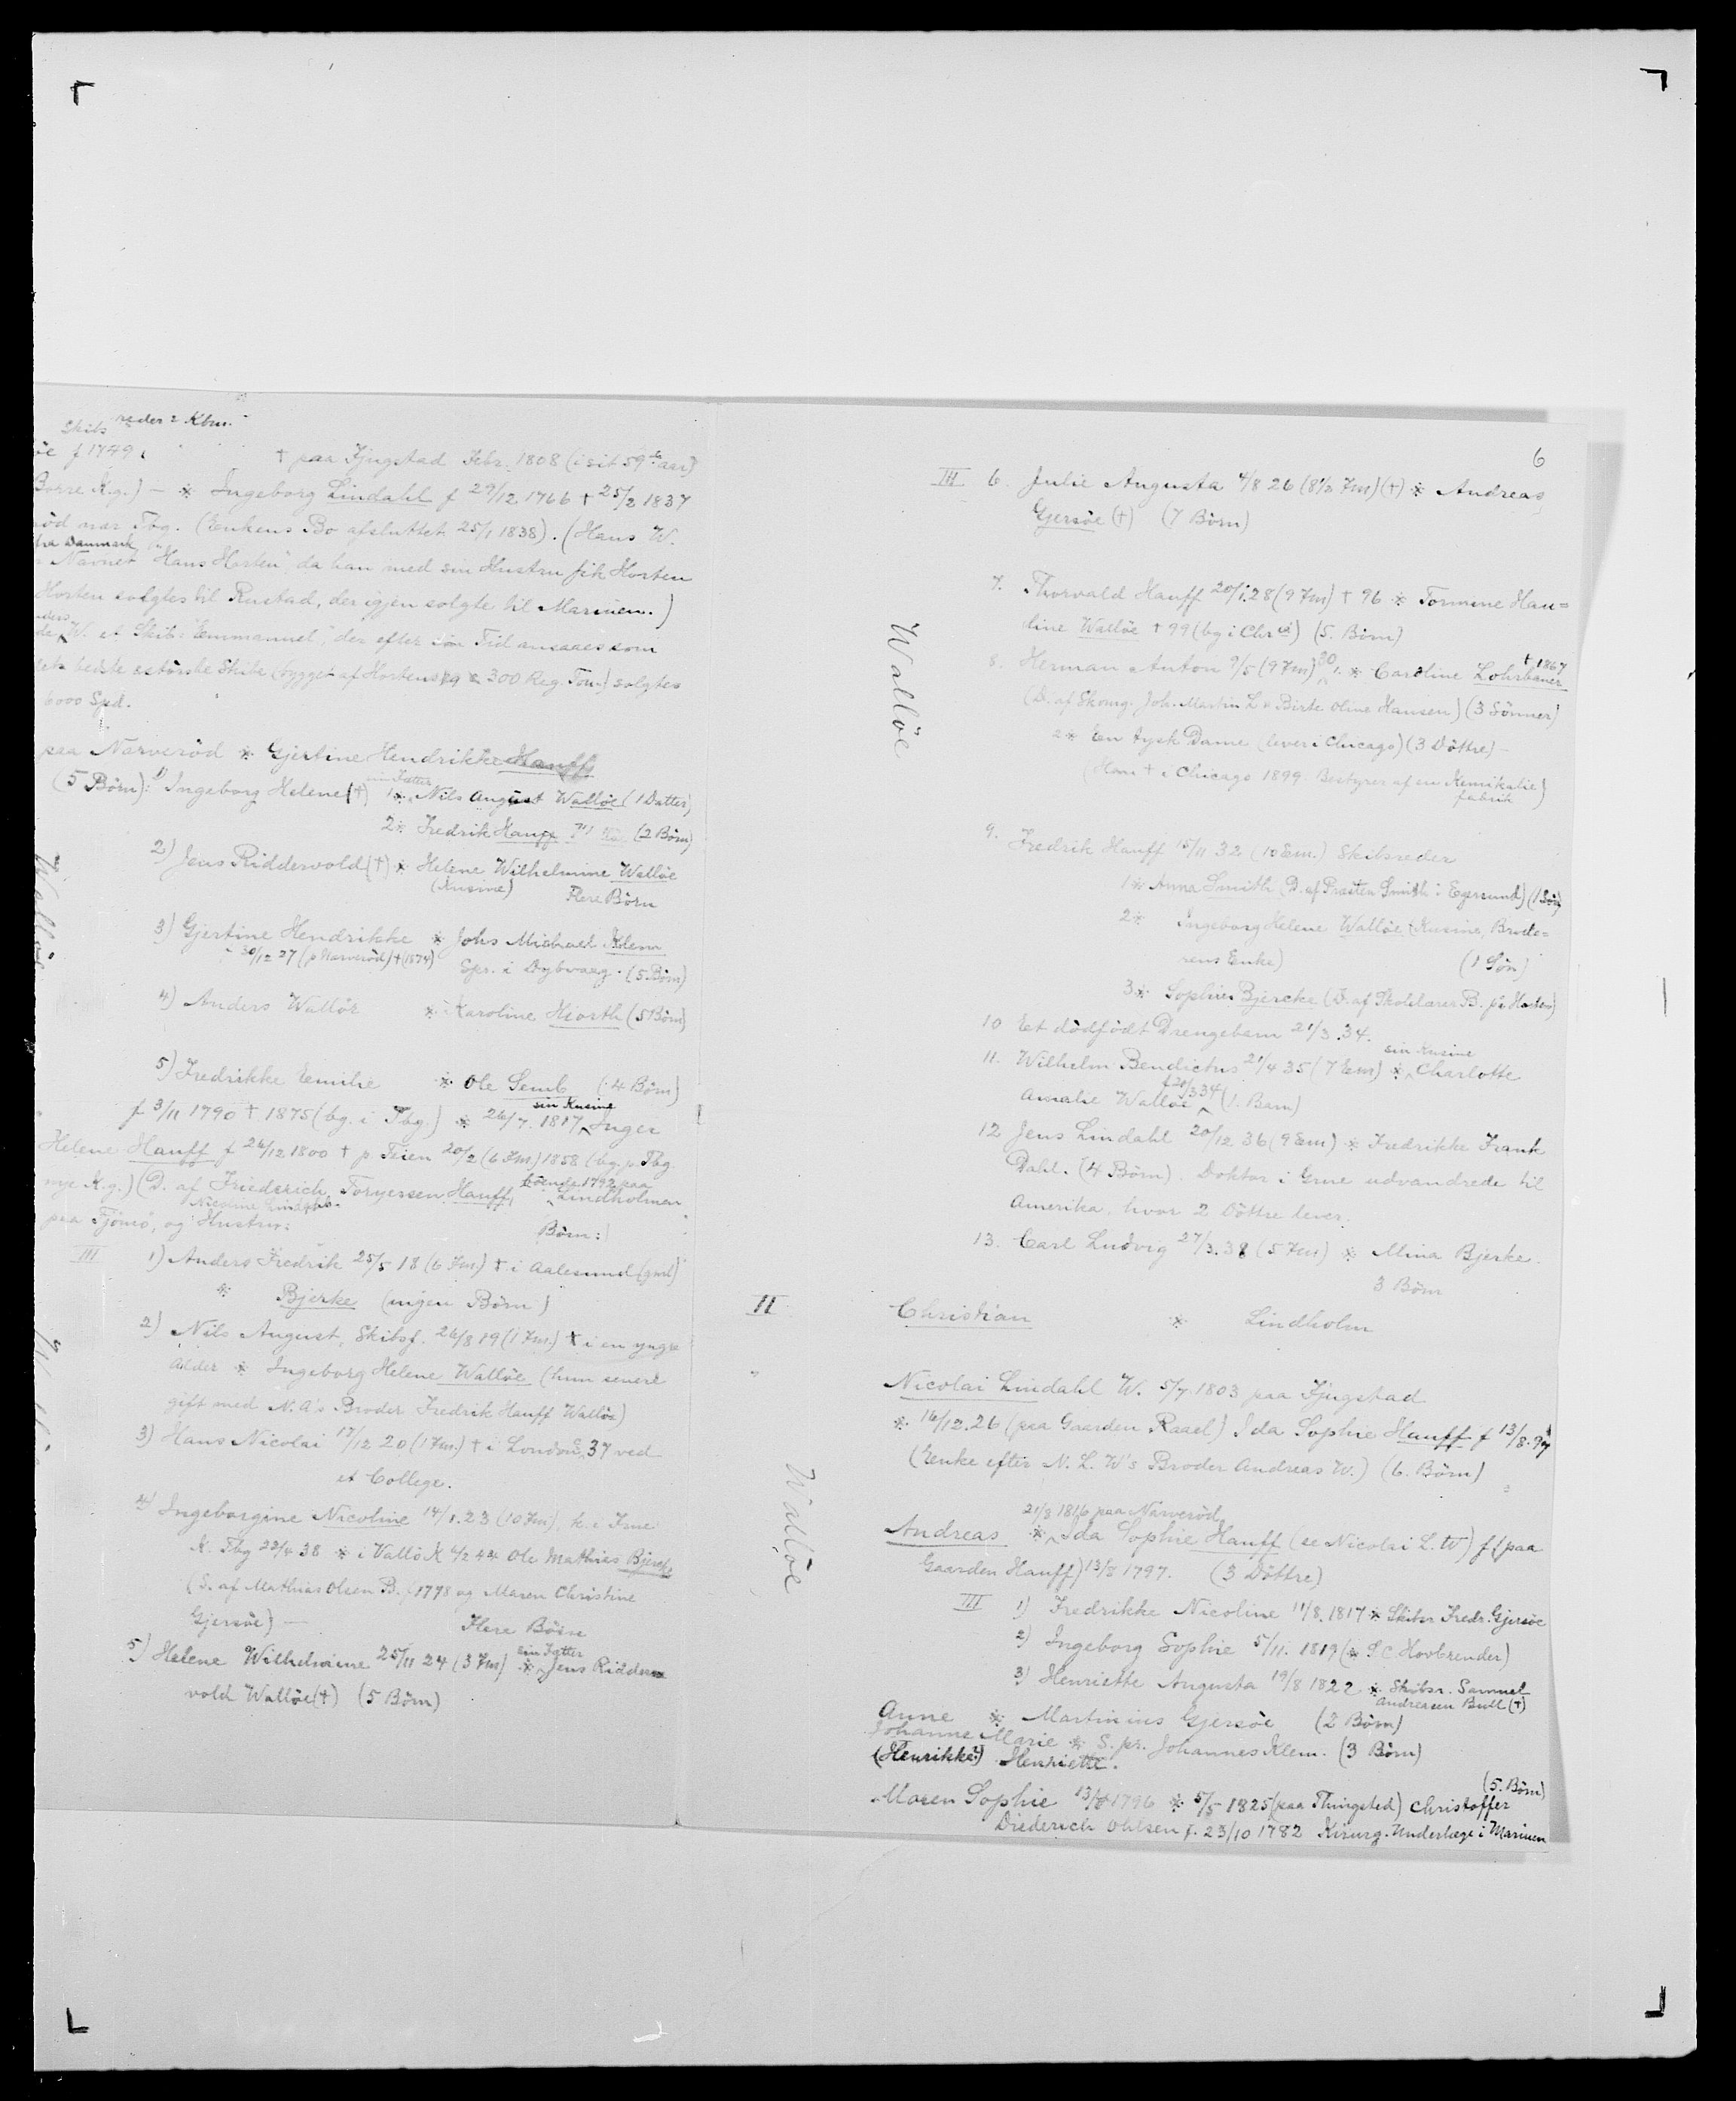 Skibsreder i Kbn.
öe f 1749. † paa Fjugstad Febr. 1808 (i sit 59de aar)
Borre K.g.) — * Ingeborg Lindahl f 29/12 1766 † 25/2 1837
röd nær Tbg. (Enkens Bo afsluttet 25/1 1838). (Hans W.
fra Danmark
Navnet "Hans Horten", da han med sin Hustru fik Horten
Horten solgtes til Rustad, der igjen solgte til Marinen.)
W. et Skib: "Emmanuel", der efter sin Tid ansaaes som
bedste & störste Skibe (bygget af Hortens 300 Reg. Ton.) solgtes
6000 Spd.
paa Narveröd * Gjertine Hendrikke Hauff
(5 Börn): 1) Ingeborg Helene (†) 1* sin Fætter Nils August Wallöe (1 Datter)
2* Fredrik Hauff (2 Börn)
2) Jens Riddervold (†) * Helene Wilhelmine Wallöe
(Kusine) Flere Börn
3) Gjertine Hendrikke * Johs Michael Klem
30/12 27 (p Narveröd) † (1874) Spr. i Dybvaag. (5 Börn)
4) Anders Wallöe * Karoline Hiorth (5 Börn)
5) Fredrikke Emilie * Ole Semb (4 Börn)
f 3/11 1790 † 1875 (bg. i Tbg.) * 26/7. 1817 sin Kusine Inger
Helene Hauff f 26/12 1800 † p. Teien 20/2 (6 Fm) 1858 (bg. p. Tbg
nye K.g.) (D. af Friederich Toryessen Hauff, boende 1792 paa Lindholmen
Nicoline Lindahl
paa Tjömö, og Hustru: Börn:
III 1) Anders Fredrik 25/5 18 (6 Fm) † i Aalesund (gml)
* Bjerke (ingen Börn)
2) Nils August, Skibsf. 26/8 19 (1 Fm.) † i en yngre
Alder * Ingeborg Helene Wallöe (hun senere
gift med N. A's Broder Fredrik Hauff Wallöe)
3) Hans Nicolai 17/12 20 (1 Fm.) † i London 37 ved
et College.
4) Ingeborgine Nicoline 14/1. 23 (10 Fm), k. i Frue
K. Tbg 22/4 38 * i Vallö K 4/2 44 Ole Mathias Bjerke
(S. af Mathias Olsen B. f 1778 og Maren Christine
Gjersöe) — Flere Börn
5) Helene Wilhelmine 25/11 24 (3 Fm) * sin Fætter Jens Ridder
vold Wallöe (†) (5 Börn)
6
III 6. Julie Augusta 4/8 26 (8 1/2 Fm) (†) * Andreas
Gjersöe (†) (7 Börn)
7. Thorvald Hauff 20/1. 28 (9 Fm) † 96 * Tormine Han=
dine Wallöe † 99 (bg i Chr) (5. Börn)
8. Herman Anton 9/5 (9 Fm) 30 1. * Caroline Lohrbauer † 1867
(D. af Skomg. Joh. Martin L & Birte Oline Hansen) (3 Sönner)
2* En tysk Dame (lever i Chicago) (3 Döttre) —
(Han † i Chicago 1899. Bestyrer af en Kemikalie)
fabrik
9. Fredrik Hauff 15/11 32 (10 Em.) Skibsreder
1* Anna Smith (D. af Præsten Smith i Egersund) (1 Sön)
2* Ingeborg Helene Wallöe (Kusine, Brode=
rens Enke) (1 Sön)
3* Sophie Bjercke (D. af Skolelærer B. fra Horten)
10 Et dödfödt Drengebarn 21/3. 34.
11. Wilhelm Bendictus 21/4 35 (7 Em) * sin Kusine Charlotte
Amalie Wallöe f 20/3 34 (1. Barn)
12 Jens Lindahl 20/12 36 (9 Em) * Fredrikke Frank
Dahl. (4 Börn). Doktor i Grue udvandrede til
Amerika, hvor 2 Döttre lever.
13. Carl Ludvig 27/3. 38 (5 Fm) * Mina Bjerke.
3 Börn
II Christian * Lindholm
" Nicolai Lindahl W. 5/7. 1803 paa Fjugstad
* 16/12. 26 (paa Gaarden Raael) Ida Sophie Hauff f 13/8. 97
(Enke efter N. L. W's Broder Andreas W.) (6. Börn)
21/8 1816 paa Narveröd
Andreas * Ida Sophie Hauff (se Nicolai L. W) f (paa
Gaarden Hauff) 13/8 1797. (3 Döttre)
III 1) Fredrikke Nicoline 11/8. 1817 * Skibsr Fredr. Gjersöe
2) Ingeborg Sophie 5/11. 1819 (* S C Hovbrender)
3) Henriette Augusta 19/8 1822 * Skibsr. Samuel
Andreasen Bull (†)
Anne * Martinius Gjersöe (2 Börn)
Johanne Marie * S. pr. Johannes Klem. (3 Börn)
(Henrikke?) Henriette.
(5. Börn)
Maren Sophie 13/8 1796 * 5/5 1825 (paa Thingsted) Christoffer
Diederich Ohlsen f. 23/10 1782 Kirurg. Underlæge i Marinen
Wallöe
Wallöe
Wallöe